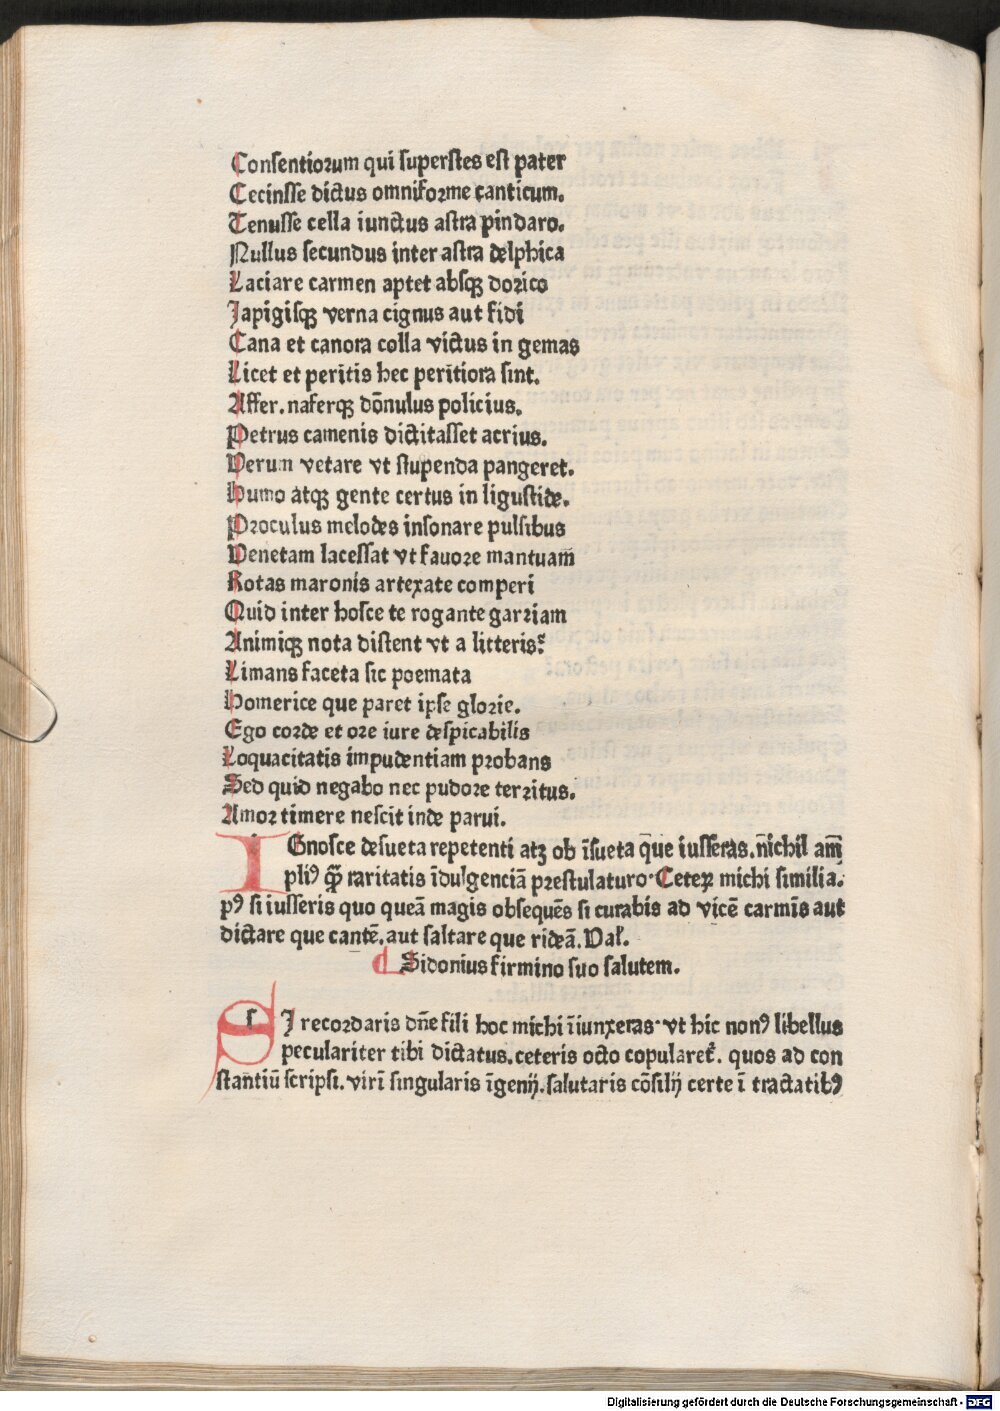 Consentiorum qui superstes est pater
Cecinsse dictus omniforme canticum.
Tenusse cella iunctus astra pindaro.
Nullus secundus inter astra delphica
Laciare carmen aptet absqꝫ dorico
Iapigisqꝫ verna cignus aut fidi
Cana et canora colla victus in gemas
Licet et peritis hec peritiora sint.
Affer. naferqꝫ dōnulus policius.
Petrus camenis dictitasset acrius.
Verum vetare vt stupenda pangeret.
Humo atqꝫ gente certus in ligustide.
Proculus melodes insonare pulsibus
Venetam lacessat vt fauore mantuam̄
Rotas maronis artexate comperi
Quid inter hosce te rogante garriam
Animiqꝫ nota distent vt a litteris?
Limans faceta sic poemata
Homerice que paret ipse glorie.
Ego corde et ore iure despicabilis
Loquacitatis impudentiam probans
Sed quid negabo nec pudore territus.
Amor timere nescit inde parui.
IGnosce desueta repetenti atꝫ ob īsueta q̄ue iusseras. n̄ichil am̄
pliꝰ qꝫ̄ raritatis īdulgenciā prestulaturo· Ceteꝝ michi similia.
pꝰ si iusseris quo queā magis obsequēs si curabis ad vicē carmīs aut
dictare que cantē. aut saltare que rideā. Val̄.
Sidonius firmino suo salutem.
SI recordaris dn̄e fili hoc michi īiunxeras· vt hic nonꝰ libellus
peculariter tibi dictatus. ceteris octo copularet᷑. quos ad con
stantiū scripsi. virī singularis īgenij. salutaris cōsilij certe ī tractatibꝰ
Digitalisierung gefördert durch die Deutsche Forschungsgemeinschaft - DFG